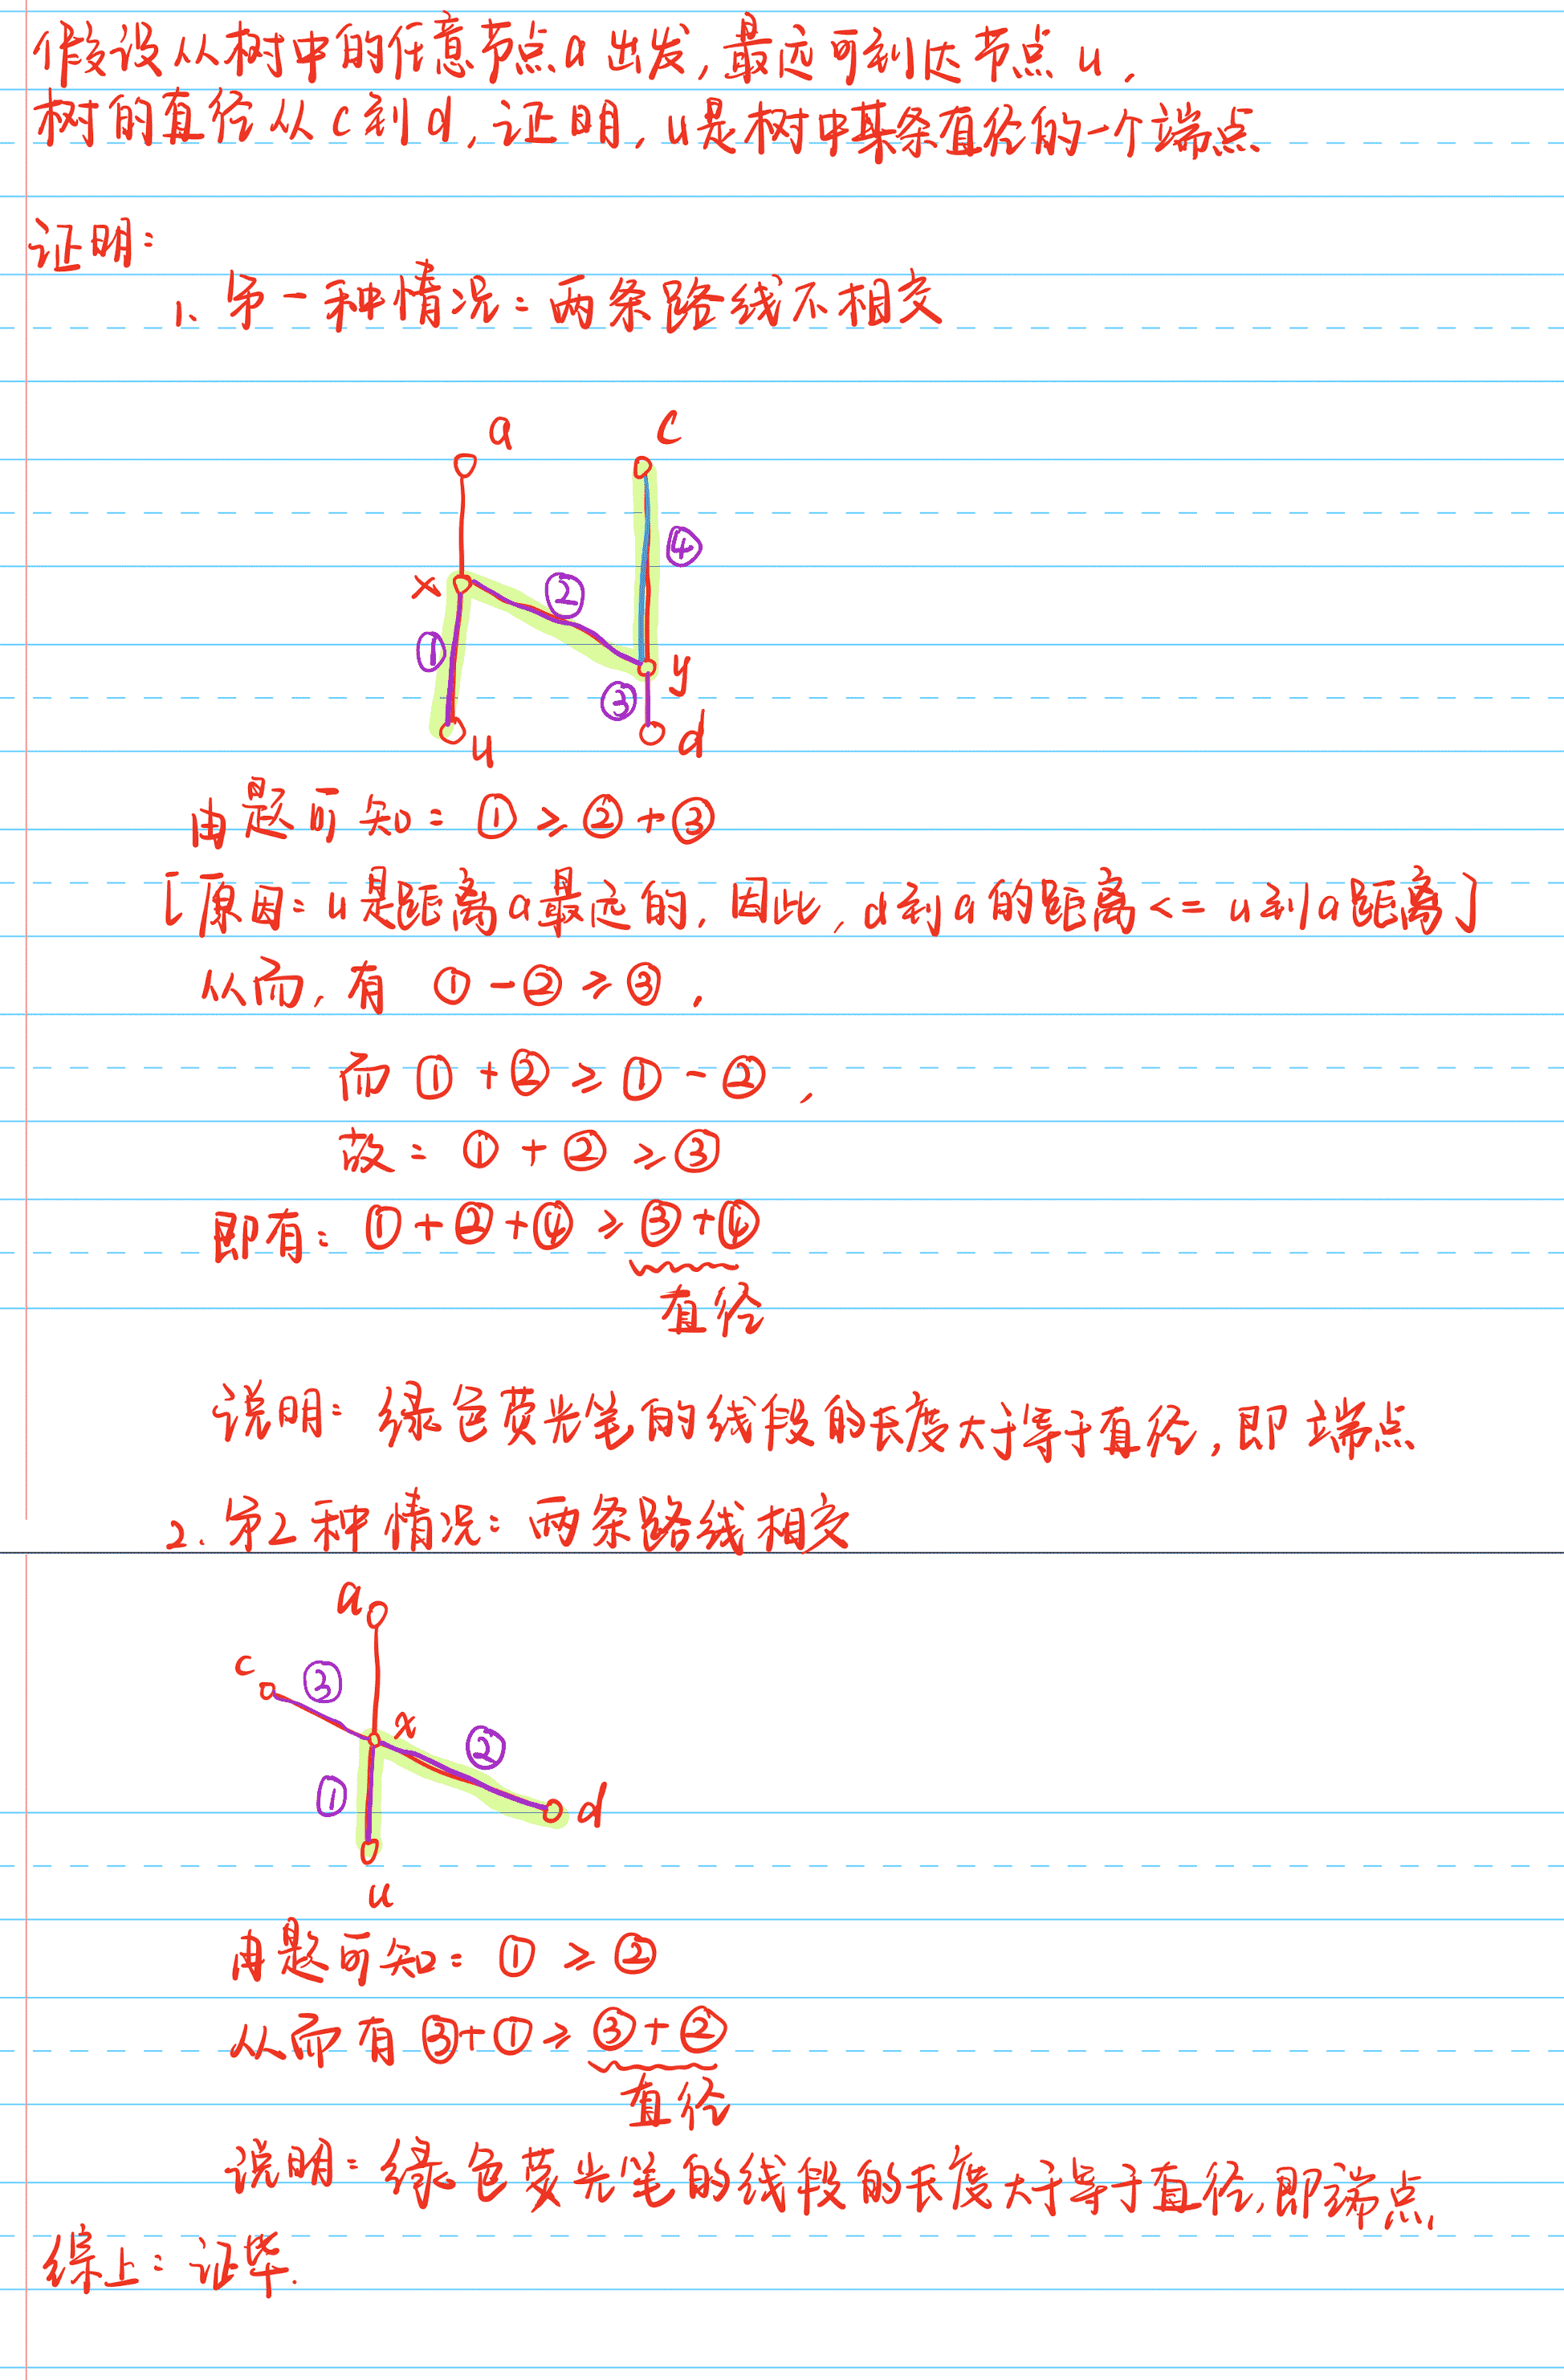 假设从树中的任意节点a出发,最远可到达节点u.
树的直径从c到d,证明,u是树中某条直径的一个端点
证明:
1、第一种情况:两条路线不相交
a
c
④
x
②
①
y
③
u
d
由题可知: ① ≥ ② + ③
[原因: u是距离a最远的, 因此, d到a的距离 <= u到a距离]
从而, 有 ① - ② ≥ ③ ,
而 ① + ② ≥ ① - ② ,
故: ① + ② ≥ ③
即有: ① + ② + ④ ≥ ③ + ④
直径
说明: 绿色荧光笔的线段的长度大于等于直径, 即端点
2. 第2种情况: 两条路线相交
a
c
③
x
②
①
d
u
由题可知: ① ≥ ②
从而有 ③ + ① ≥ ③ + ②
直径
说明: 绿色荧光笔的线段的长度大于等于直径, 即端点,
综上: 证毕.